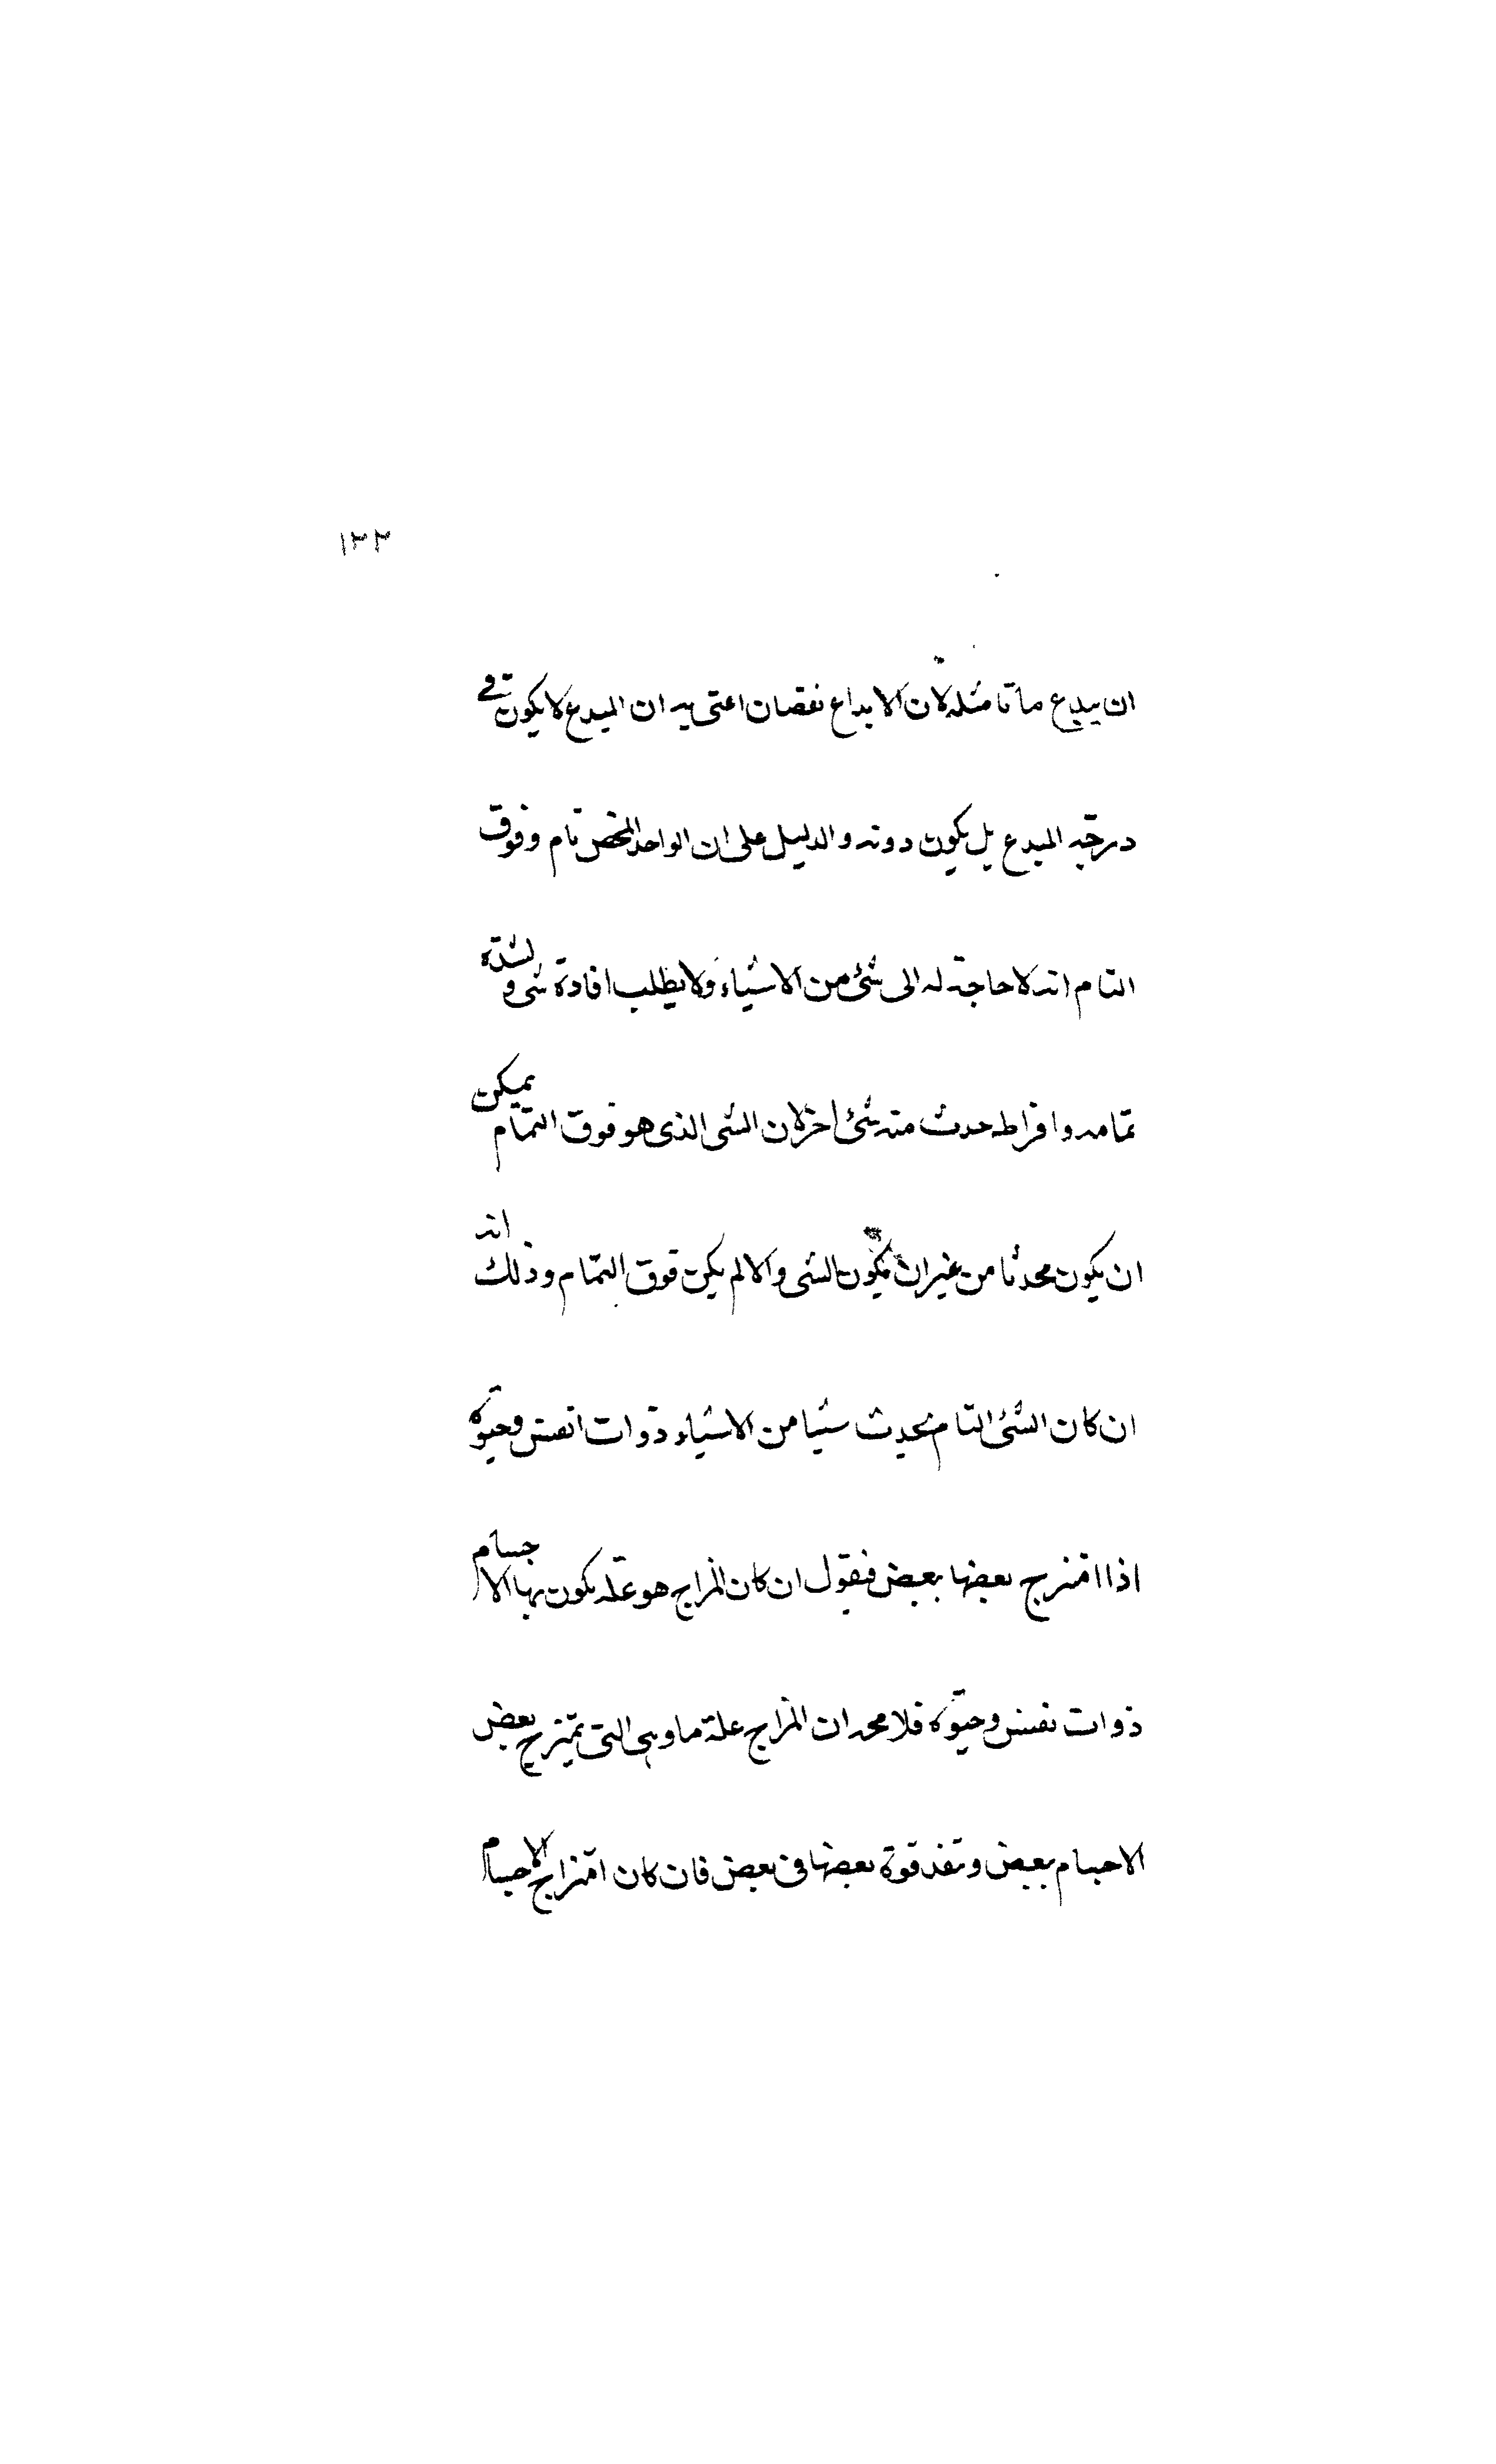 ١٢٢
ان يبدع ما تاما مثله لان الابداع نقصان اعنى به ان المبدع لا يكون فى
درجة المبدع بل يكون دونه والدليل على ان الواحد المحض تام وفوق
التام انه لا حاجة له الى شئ من الاشياء ولا يطلب افادة شى ولشدة
تمامه وافراطه حدث منه شئ اخر لان الشى الذى هو فوق التمام يمكن
ان يكون محدثا من غير ان يكون الشى والا لم يكن فوق التمام وذلك انه
ان كان الشئ التام يحدث شيا من الاشياء ذوات انفس وحيوة
اذا امتزج بعضها ببعض فيقول ان كان المزاج هو علة يكون بها الاجسام
ذوات نفس وحيوة فلا محه ان المزاج علة ما وهى التى تمتزج بعض
الاجسام ببعض وتنفذ قوة بعضها فى بعض فان كان امتزاج الاجسام